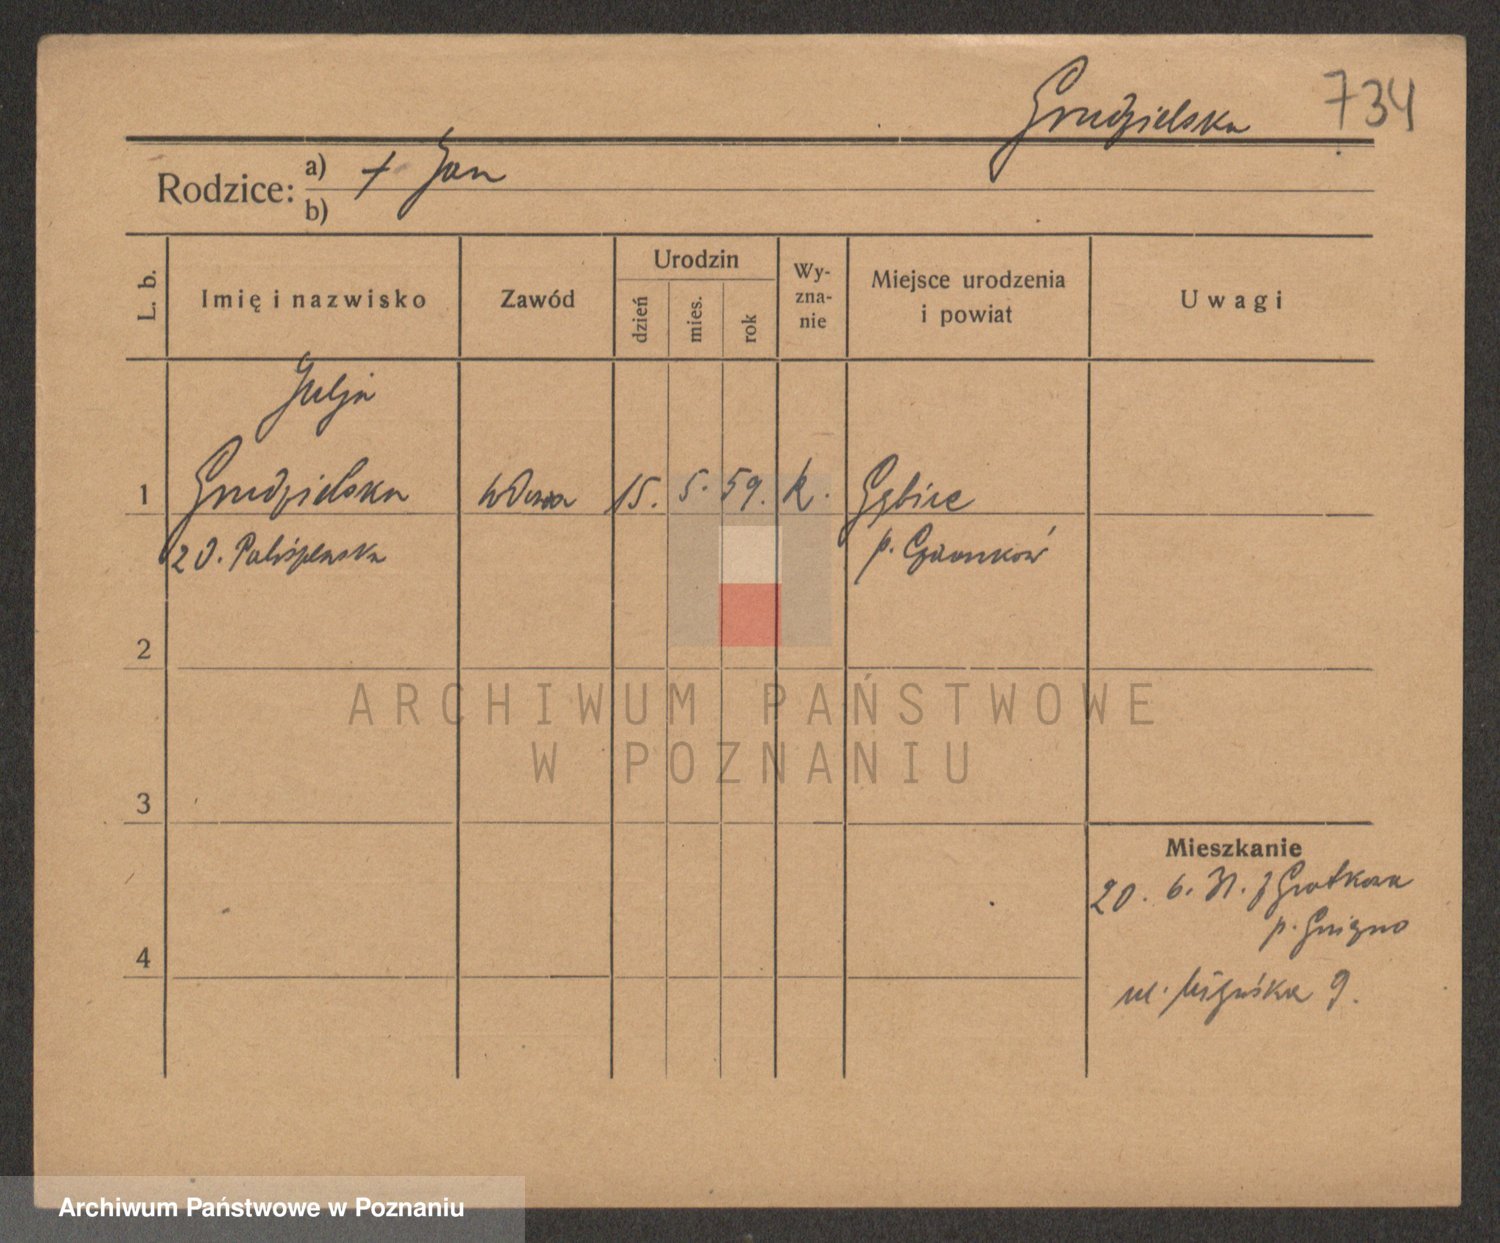 Grudzielska 734
Rodzice: a) + Jan
b)
L. b. Imię i nazwisko Zawód Urodzin dzień mies. rok Wy-zna-nie Miejsce urodzenia i powiat Uwagi
Julja
1 Grudzielska wdowa 15. 5. 59. k. Gębice
2 D. p. Czarnków
2
3
4
Mieszkanie
20. 6. 31. z
p. Gniezno
ul. 9.
ARCHIWUM PAŃSTWOWE
W POZNANIU
Archiwum Państwowe w Poznaniu